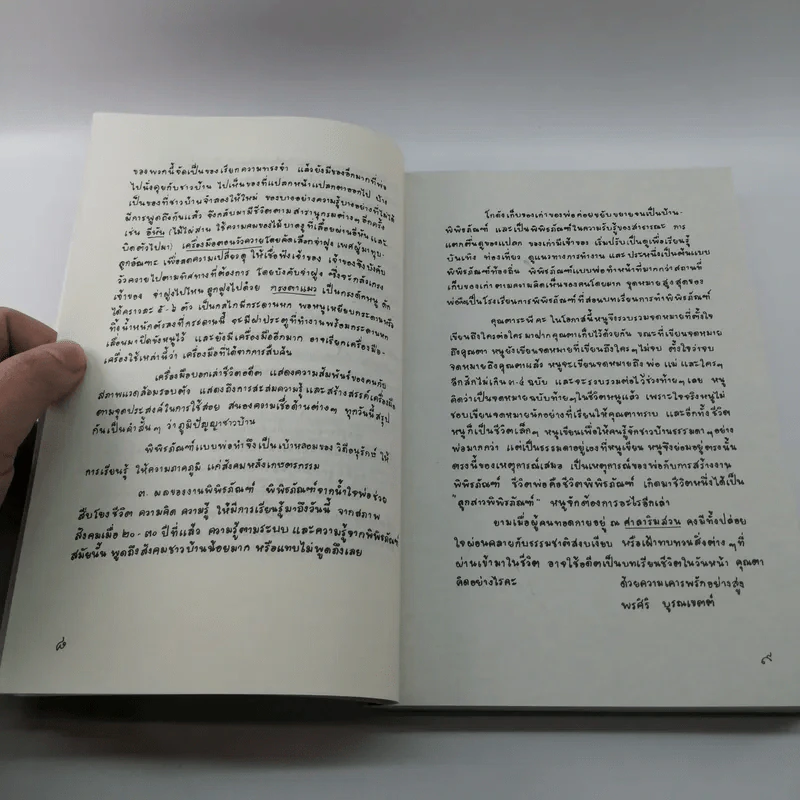 ของพวกนี้จัดเป็นของเรียกความทรงจำ แล้วยังมีของอีกมากที่พ่อ
ไปนั่งคุยกับชาวบ้าน ไปเห็นของที่แปลกหน้าแปลกตาออกไป บ้าง
เป็นของที่ชาวบ้านจำลองให้ใหม่ ของบางอย่างความรู้บางอย่างที่ไม่ได้
มีการพูดถึงกันแล้ว จึงกลับมามีชีวิตตามสาธานุกรมต่างๆ อีกครั้ง
เช่น อีหัน (ไม้ไผ่สาน ใช้ความคมของไม้ บาดงูที่เลื้อยผ่านอีหันและ
บิดตัวไปมา) เครื่องมือตอนวัวควายโดยคัดเลือกจ่าฝูง เพศผู้มาทุบ
ลูกอัณฑะ เพื่อลดความเปลี่ยวดุ ให้เชื่อฟังเจ้าของ เจ้าของจึงบังคับ
วัวควายไปตามทิศทางที่ต้องการ โดยบังคับจ่าฝูง ซึ่งจะกลัวเกรง
เจ้าของ จ่าฝูงไปไหน ลูกฝูงไปด้วย กรงดาแมว เป็นกรงดักหนู ดัก
ได้คราวละ ๕-๖ ตัว เป็นกลไกมีกระดานหก พอหนูเหยียบกระดานหรือ
ทิ้งน้ำหนักตรงลงที่กระดานนี้ จะมีฝาประตูที่ทำงานพร้อมกระดานหก
เลื่อนมาปิดขังหนูไว้ และยังมีเครื่องมืออีกมาก อาจเรียกเครื่องมือ-
เครื่องใช้เหล่านี้ว่า เครื่องมือที่ได้จากการสืบค้น
เครื่องมือบอกเล่าชีวิตอดีต แสดงความสัมพันธ์ของคนกับ
สภาพแวดล้อมรอบตัว แสดงถึงการสะสมความรู้ และสร้างสรรค์เครื่องมือ
ตามจุดประสงค์ในการใช้สอย สนองความเชื่อด้านต่างๆ ทุกวันนี้สรุป
กันเป็นคำสั้นๆ ว่า ภูมิปัญญาชาวบ้าน
พิพิธภัณฑ์แบบพ่อทำจึงเป็นเบ้าหลอมของ วิถีอนุรักษ์ ให้
การเรียนรู้ ให้ความภาคภูมิ แก่สังคมหลังเกษตรกรรม
๓. ผลของงานพิพิธภัณฑ์ พิพิธภัณฑ์จากน้ำใจพ่อช่วย
สืบโยงชีวิต ความคิด ความรู้ ให้มีการเรียนรู้มาถึงวันนี้ จากสภาพ
สังคมเมื่อ ๒๐-๓๐ ปีที่แล้ว ความรู้ตามระบบ และความรู้จากพิพิธภัณฑ์
สมัยนั้น พูดถึงสังคมชาวบ้านน้อยมาก หรือแทบไม่พูดถึงเลย
๘
โกดังเก็บของเก่าของพ่อค่อยขยับขยายจนเป็นบ้าน-
พิพิธภัณฑ์ และเป็นพิพิธภัณฑ์ในความรับรู้ของสาธารณะ การ
แตกตื่นดูของแปลก ของเก่ามีเจ้าของ เริ่มปรับเป็นดูเพื่อเรียนรู้
บันเทิง ท่องเที่ยว ดูแนวทางการทำงาน และ ประหนึ่งเป็นต้นแบบ
พิพิธภัณฑ์ท้องถิ่น พิพิธภัณฑ์แบบพ่อทำหน้าที่มากกว่าสถานที่
เก็บของเก่า ตามความคิดเห็นของคนโดยมาก จุดหมายสูงสุดของ
พ่อคือเป็นโรงเรียนการพิพิธภัณฑ์ ที่สอนบทเรียนการทำพิพิธภัณฑ์
คุณตาระพี คะ ในโอกาสนี้หนูจึงรวบรวมจดหมายที่ตั้งใจ
เขียนถึงใครต่อใครมาฝากคุณตาเก็บไว้ด้วยกัน ขณะที่เขียนจดหมาย
ถึงคุณตา หนูยังเขียนจดหมายที่เขียนถึงใครๆ ไม่จบ ตั้งใจว่าจบ
จดหมายถึงคุณตาแล้ว หนูจะเขียนจดหมายถึง พ่อ แม่ และใครๆ
อีกสักไม่เกิน ๓-๔ ฉบับ และจะรวบรวมต่อไว้ช่วงท้ายๆ เลย หนู
คิดว่าเป็นจดหมายฉบับท้ายๆ ในชีวิตหนูแล้ว เพราะใจจริงหนูไม่
ชอบเขียนจดหมายนักอย่างที่เรียนให้คุณตาทราบ และอีกทั้งชีวิต
หนูก็เป็นชีวิตเล็กๆ หนูเขียนเพื่อให้คนรู้จักชาวบ้านธรรมดาๆ อย่าง
พ่อมากกว่า แต่เป็นธรรมดาอยู่เองที่หนูเขียน หนูจึงย่อมอยู่ตรงนั้น
ตรงนี้ของเหตุการณ์เสมอ เป็นเหตุการณ์ของพ่อกับการสร้างงาน
พิพิธภัณฑ์ ชีวิตพ่อคือชีวิตพิพิธภัณฑ์ เกิดมาชีวิตหนึ่งได้เป็น
"ลูกสาวพิพิธภัณฑ์" หนูจักต้องการอะไรอีกเล่า
ยามเมื่อผู้คนทอดกายอยู่ ณ ศาลาริมสวน คงมีทั้งปล่อย
ใจผ่อนคลายกับธรรมชาติสงบเงียบ หรือเฝ้าทบทวนสิ่งต่างๆ ที่
ผ่านเข้ามาในชีวิต อาจใช้อดีตเป็นบทเรียนชีวิตในวันหน้า คุณตา
คิดอย่างไรคะ ด้วยความเคารพรักอย่างสูง
พรศิริ บูรณเขตต์
๙